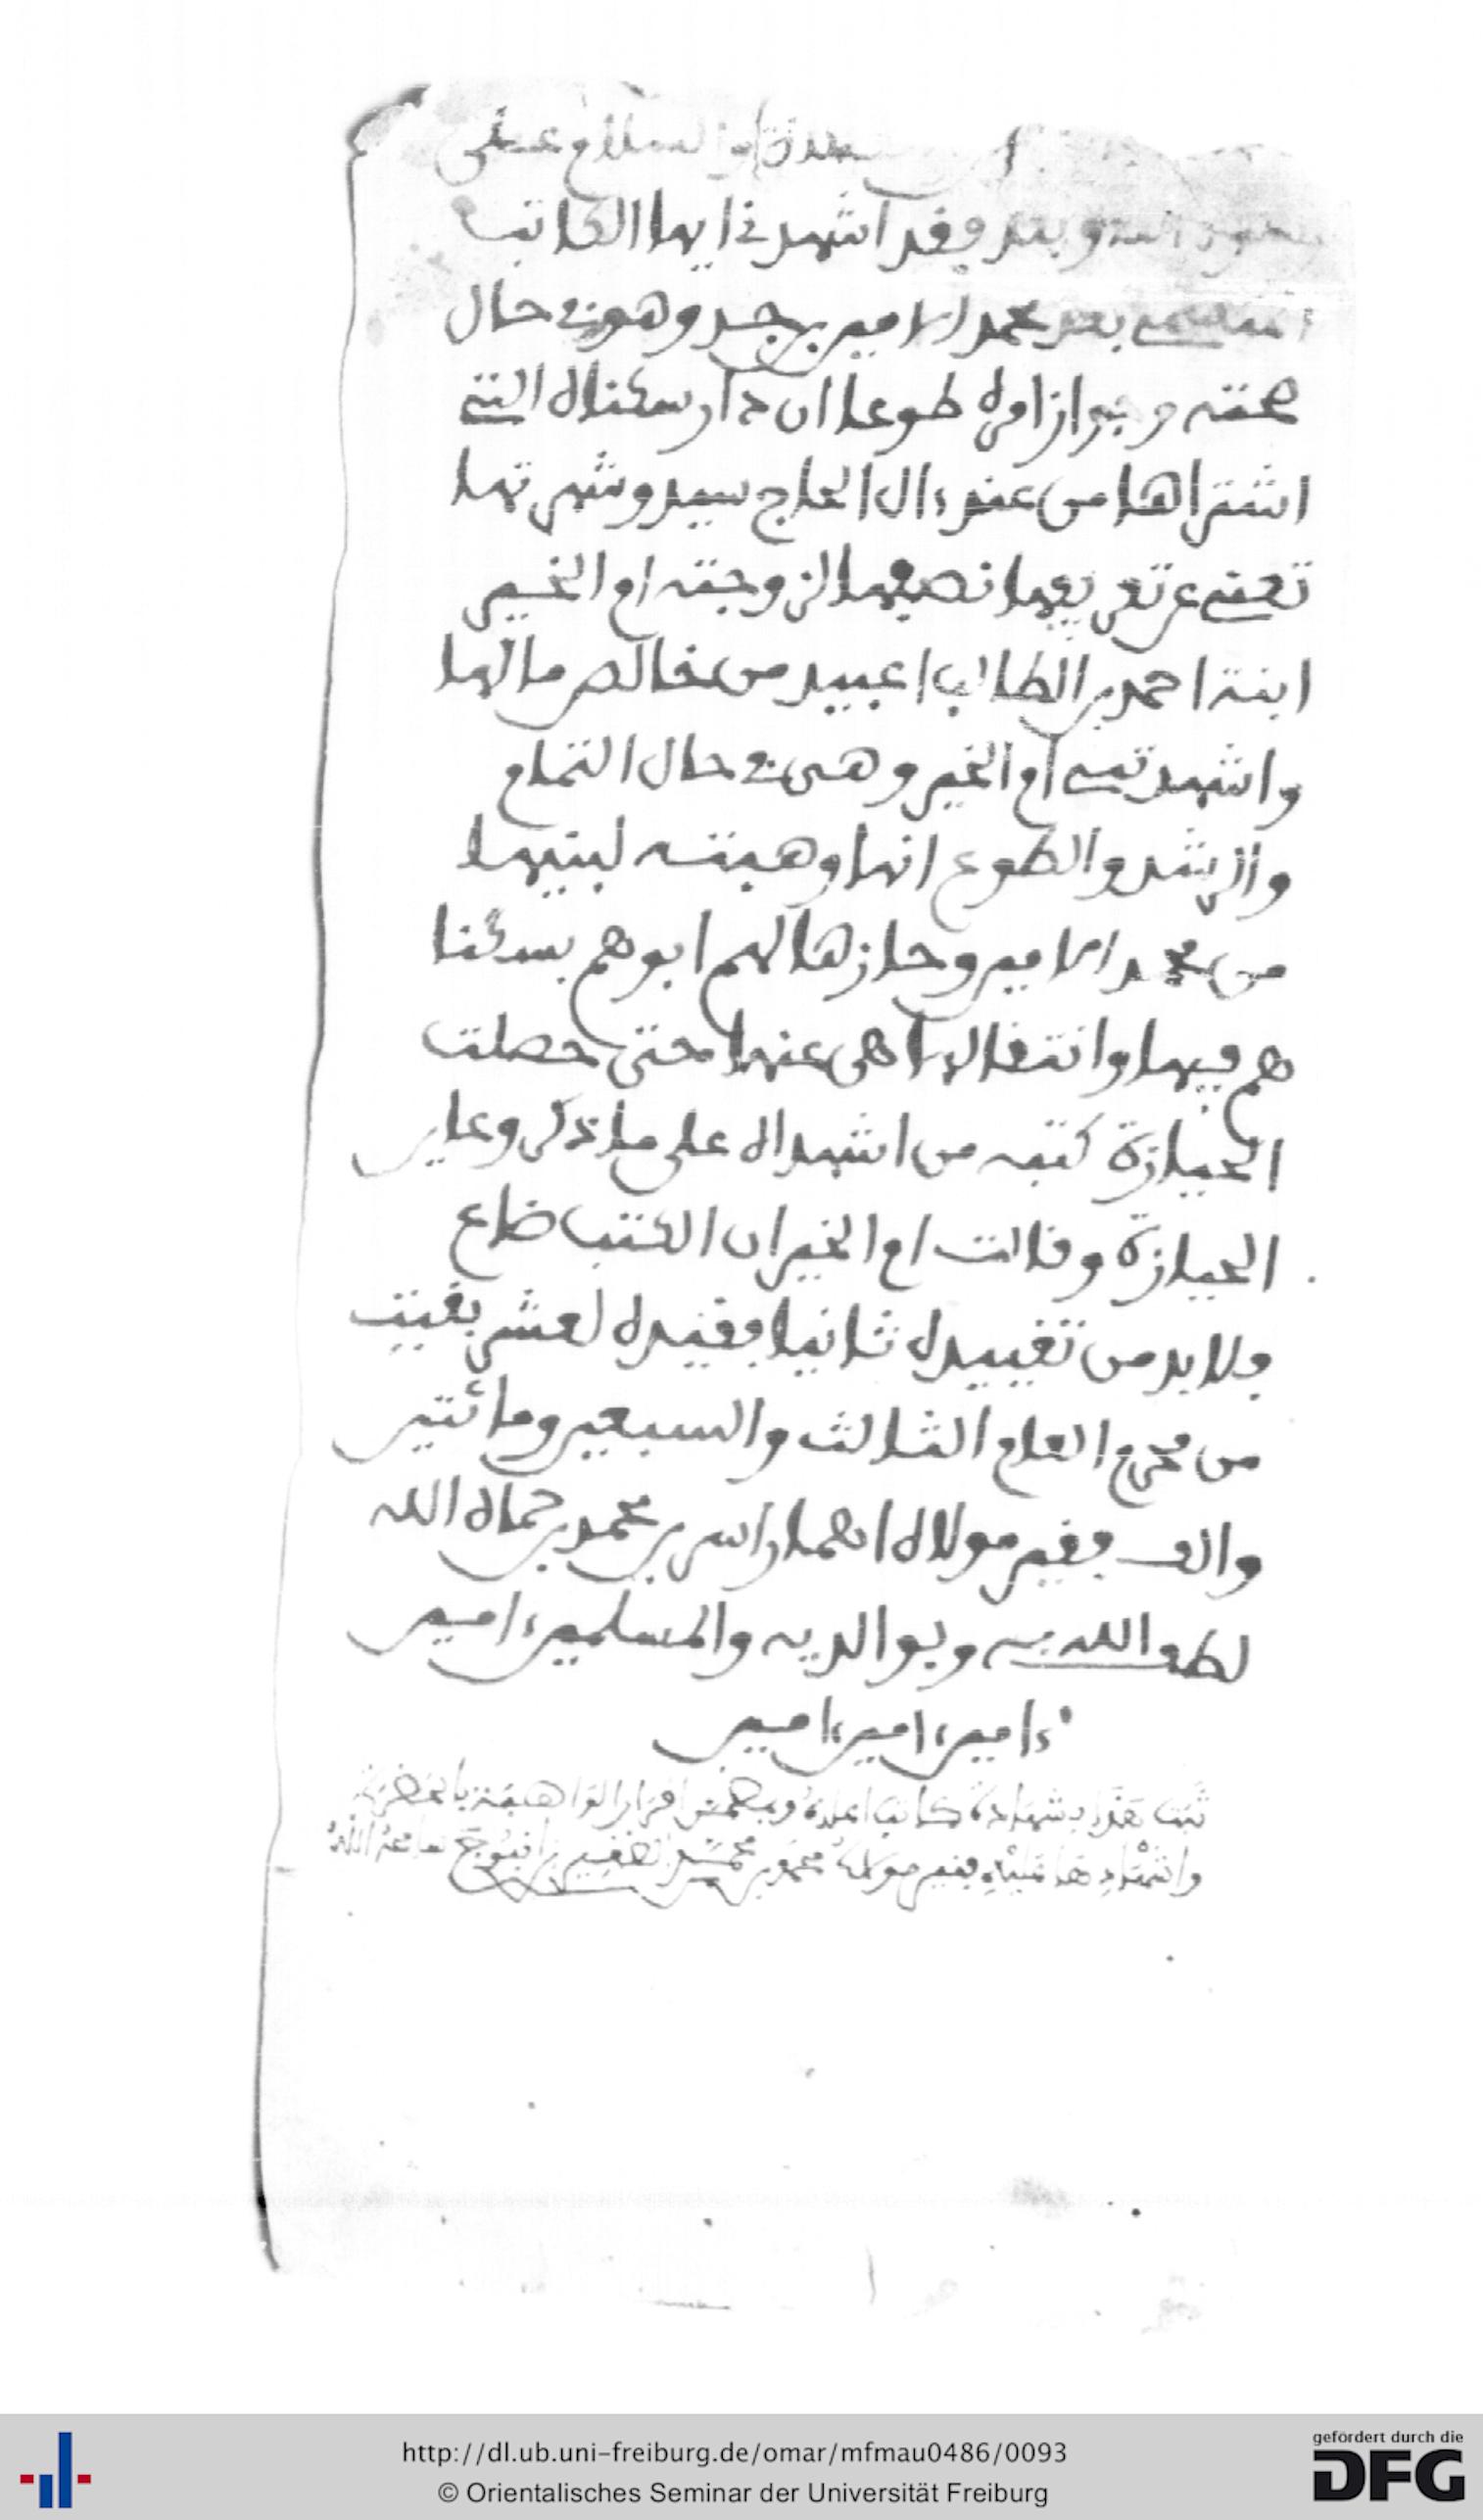 والسلام على
وبعد فقد اشهدني ايها الكاتب
بعد محمد الامين بن حمد وهو في حال
صحته وجواز امره طوعا ان دار سكناه التي
اشتراها من عند ءال الحاج سيد وشهرتها
تغني عن تعريفها نصفها لزوجته ام الخير
ابنة احمد بن الطالب اعبيد من خالص مالها
واشهدتني ام الخير وهي في حال التمام
والرشد والطوع انها وهبته لبنيها
من محمد الامين وحازها لهم ابوهم بسكنا
هم فيها وانتقالها هي عنها حتى حصلت
الحيازة كتبه من اشهداه على ما ذكر وعاين
الحيازة وقالت ام الخير ان الكتب ضاع
ولا بد من تقييده ثانيا فقيده لعشر بقيت
من محرم العام الثالث والسبعين ومائتين
والف فقير مولاه انحمد بن محمد بن حماه الله
لطف الله به وبوالديه والمسلمين ءامين
ءامين ءامين ءامين
ثبت هذا بشهادة كاتب اعلاه اقرار الواهبة
واشهادها عليه فقير مولاه محمد بن محمد الصغير بن انبوج
http://dl.ub.uni-freiburg.de/omar/mfmau0486/0093
© Orientalisches Seminar der Universität Freiburg
gefördert durch die
DFG